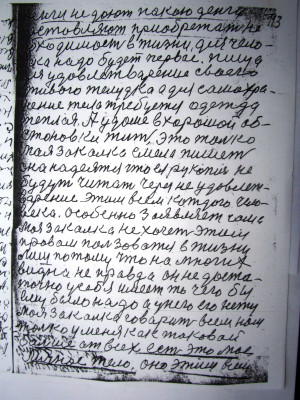 денги не дают такою денги
заставляют приобретат не
обходимост в жизни, для чело-
века надо будет первае. пища
для удовлетварение своего
живого желудка а для самахра-
нение тела требуется одежда
теплая. А удоме в хорошой об-
становки жит, Это толко
мая Закалка смела пишет
она надеятся что ея рукопис не
будут читат через не удовлет-
варение этим всем каждого чело-
века. особенно Заявляет сама
моя закалка не хочет этими
правам ползоватся в жизни
ими потому что на многих
видна не правда он не доста-
точно у себя имеет то чего бы
ему было надо а у него его нету
моя закалка говарит всем нам
толко у меня как таковой
болше от всех ест это мое
личное тело, оно этим всем